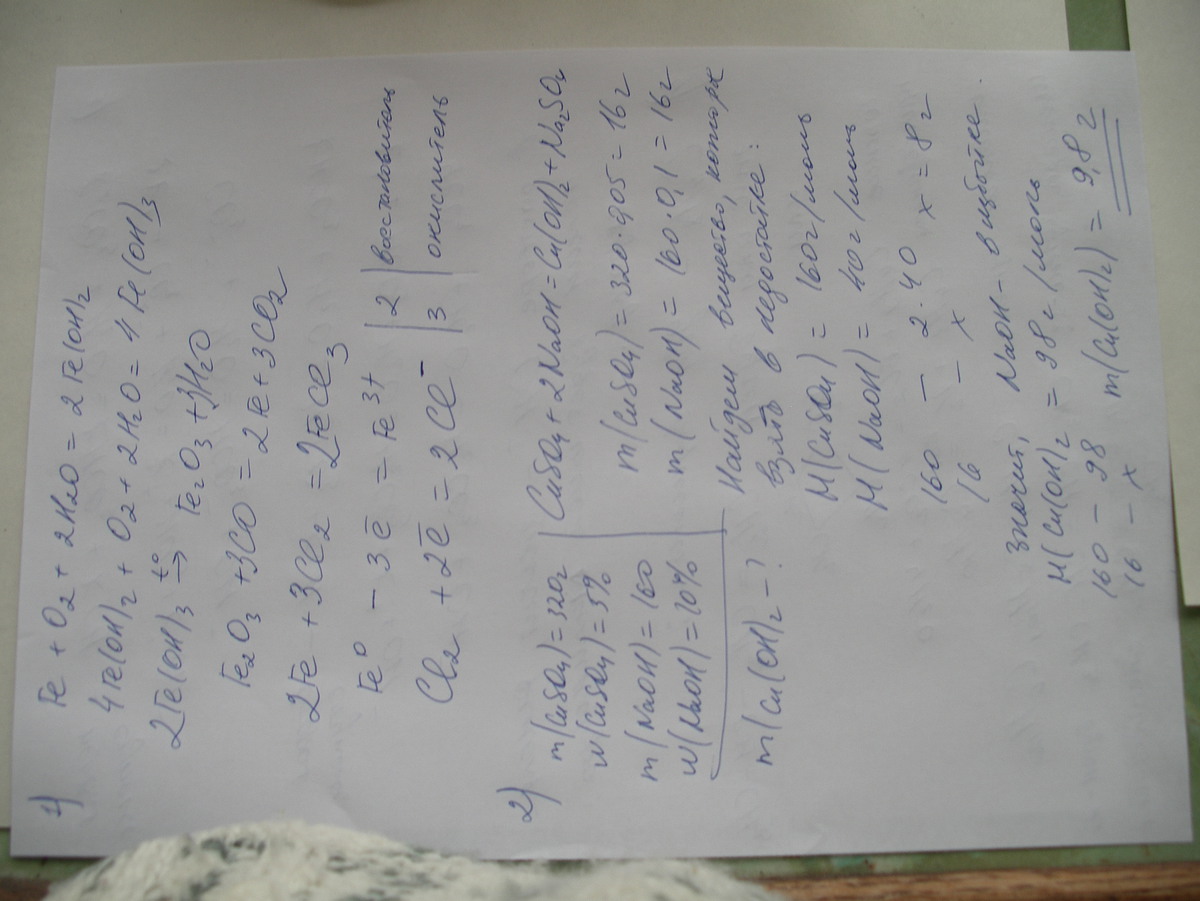 1)
Fe + O₂ + 2H₂O = 2Fe(OH)₂
4Fe(OH)₂ + O₂ + 2H₂O = 4Fe(OH)₃
2Fe(OH)₃ t°→ Fe₂O₃ + 3H₂O
Fe₂O₃ + 3CO = 2Fe + 3CO₂
2Fe + 3Cl₂ = 2FeCl₃
Fe⁰ − 3ē = Fe³⁺ | 2 | восстановитель
Cl₂ + 2ē = 2Cl⁻ | 3 | окислитель
2)
m(CuSO₄) = 320г
w(CuSO₄) = 5%
m(NaOH) = 160
w(NaOH) = 10%
m(Cu(OH)₂ − ?
CuSO₄ + 2NaOH = Cu(OH)₂ + Na₂SO₄
m(CuSO₄) = 320 · 0,05 = 16г
m(NaOH) = 160 · 0,1 = 16г
Найдем вещество, которе
взято в недостатке:
M(CuSO₄) = 160г/моль
M(NaOH) = 40г/моль
160 − 2·40
16 − x x = 8г
Значит, NaOH − в избытке.
M(Cu(OH)₂ = 98г/моль
160 − 98
16 − x m(Cu(OH)₂) = 9,8г